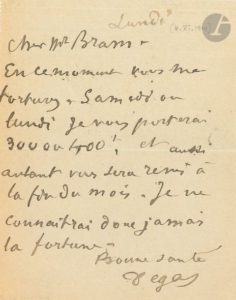 Lundi
Cher Mr Bram
En ce moment vous me
torturez. Samedi ou
lundi je vous porterai
300 ou 400! et aussi
autant vous sera remis à
la fin du mois. Je ne
connaitrai donc jamais
la fortune
Bonne santé
Degas